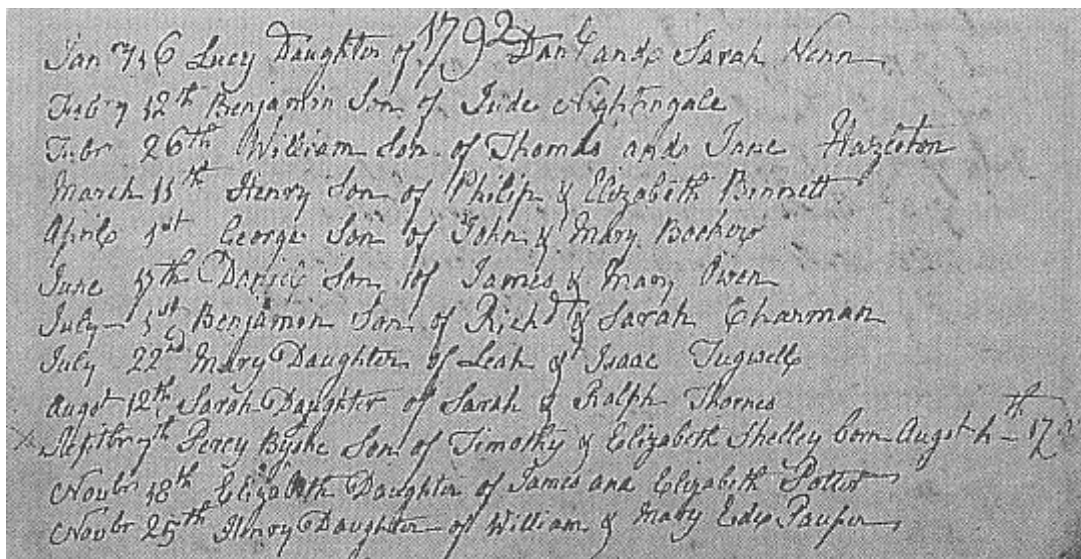 1792
Janry 6 Lucy Daughter of Danl and Sarah Nenn
Febry 12th Benjamin Son of Jude Nightingale
Febr 26th William Son of Thomas and Jane Hazleton
March 11th Henry Son of Philip & Elizabeth Bennett
April 1st George Son of John & Mary
June 17th Daniel Son of James & Mary Owen
July 1st Benjamin Son of Richd & Sarah Charman
July 22nd Mary Daughter of Leah & Isaac Tugwell
Augst 12th Sarah Daughter of Sarah & Ralph Thornes
Septbr 7th Percy Byshe Son of Timothy & Elizabeth Shelley born Augst 4th
Novbr 18th Elizabeth Daughter of James and Elizabeth Potter
Novbr 25th Henry Daughter of William & Mary Pauper